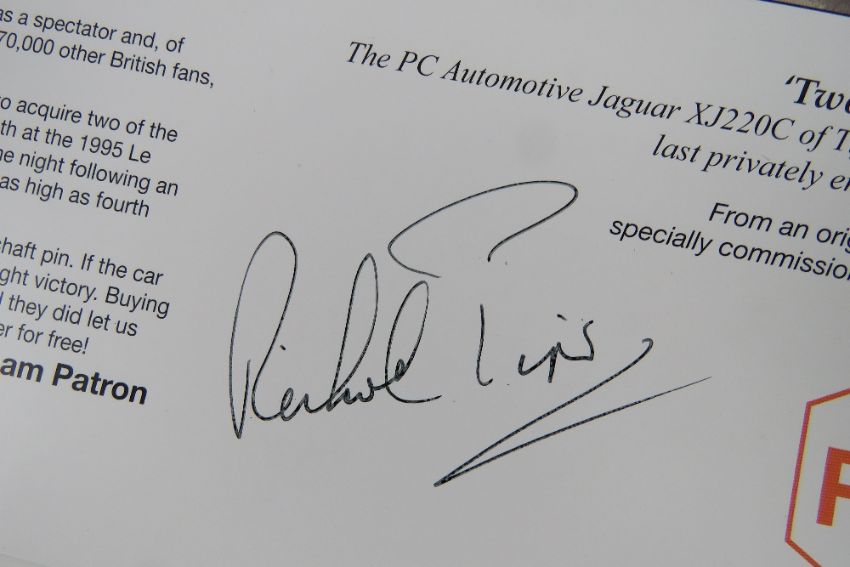 as a spectator and, of
70,000 other British fans,
to acquire two of the
th at the 1995 Le
ne night following an
as high as fourth
shaft pin. If the car
ght victory. Buying
they did let us
er for free!
am Patron
'Twe
The PC Automotive Jaguar XJ220C of T
last privately e
From an orig
specially commissio
Richard